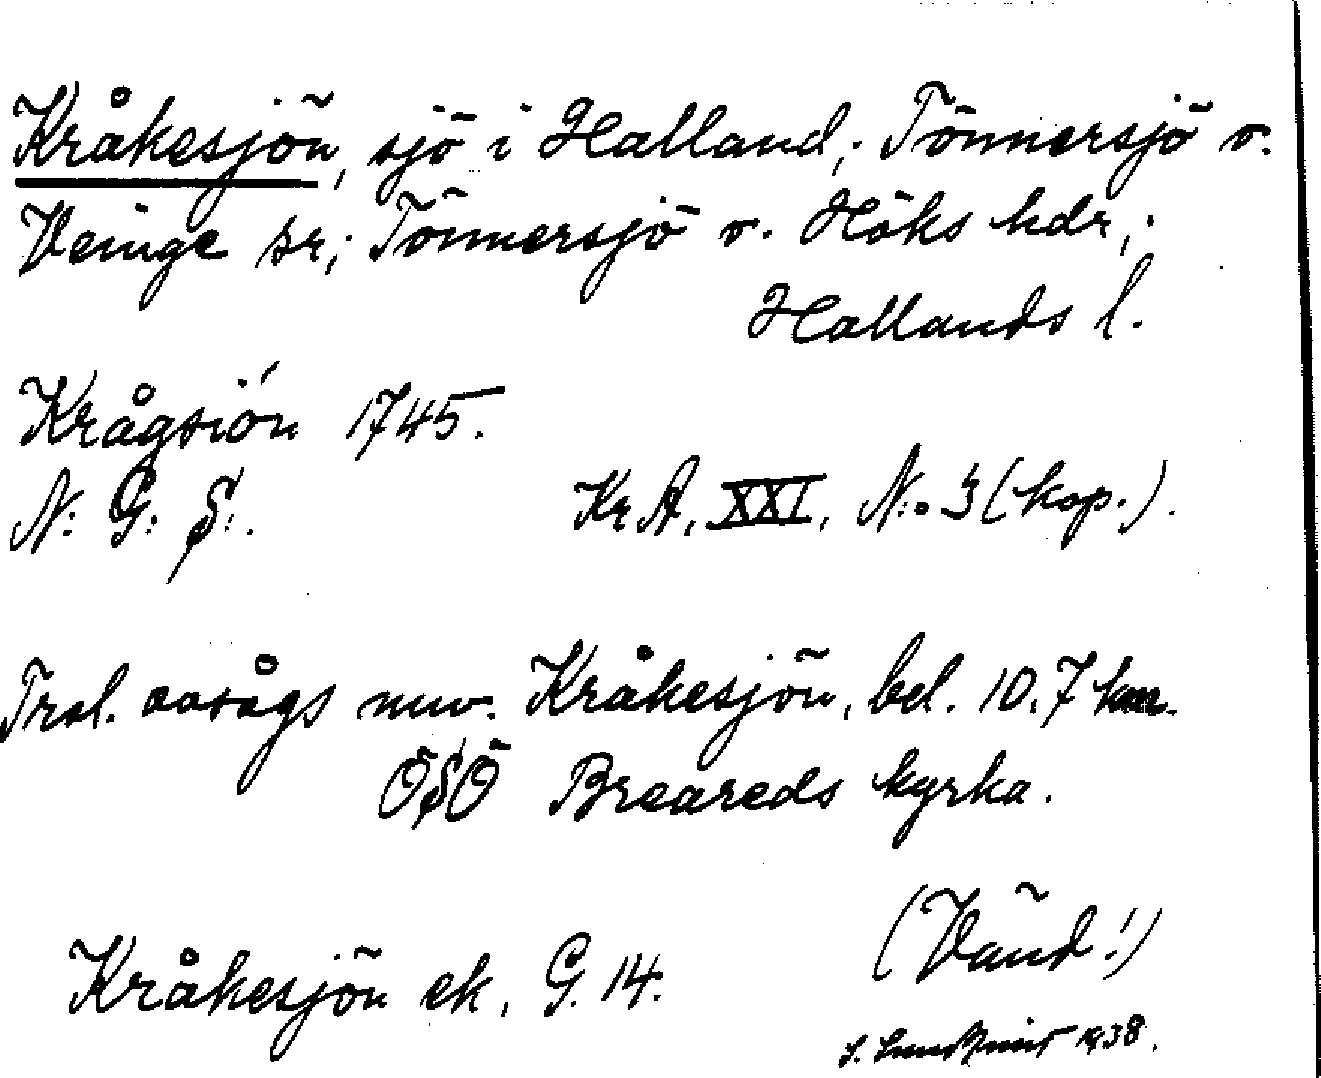 Kråkesjön, sjö i Halland; Tönnersjö o.
Veinge sr; Tönnersjö o. Höks hdr;
Hallands l.
Krågsiön 1745.
N. G. S.
Kr A, XXI, N:o 3 (kop.).
Trol. avsågs nuv. Kråkesjön, bel. 10.7 km.
ÖSÖ Breareds kyrka.
(Vänd!)
Kråkesjön ek. G. 14.
1938.